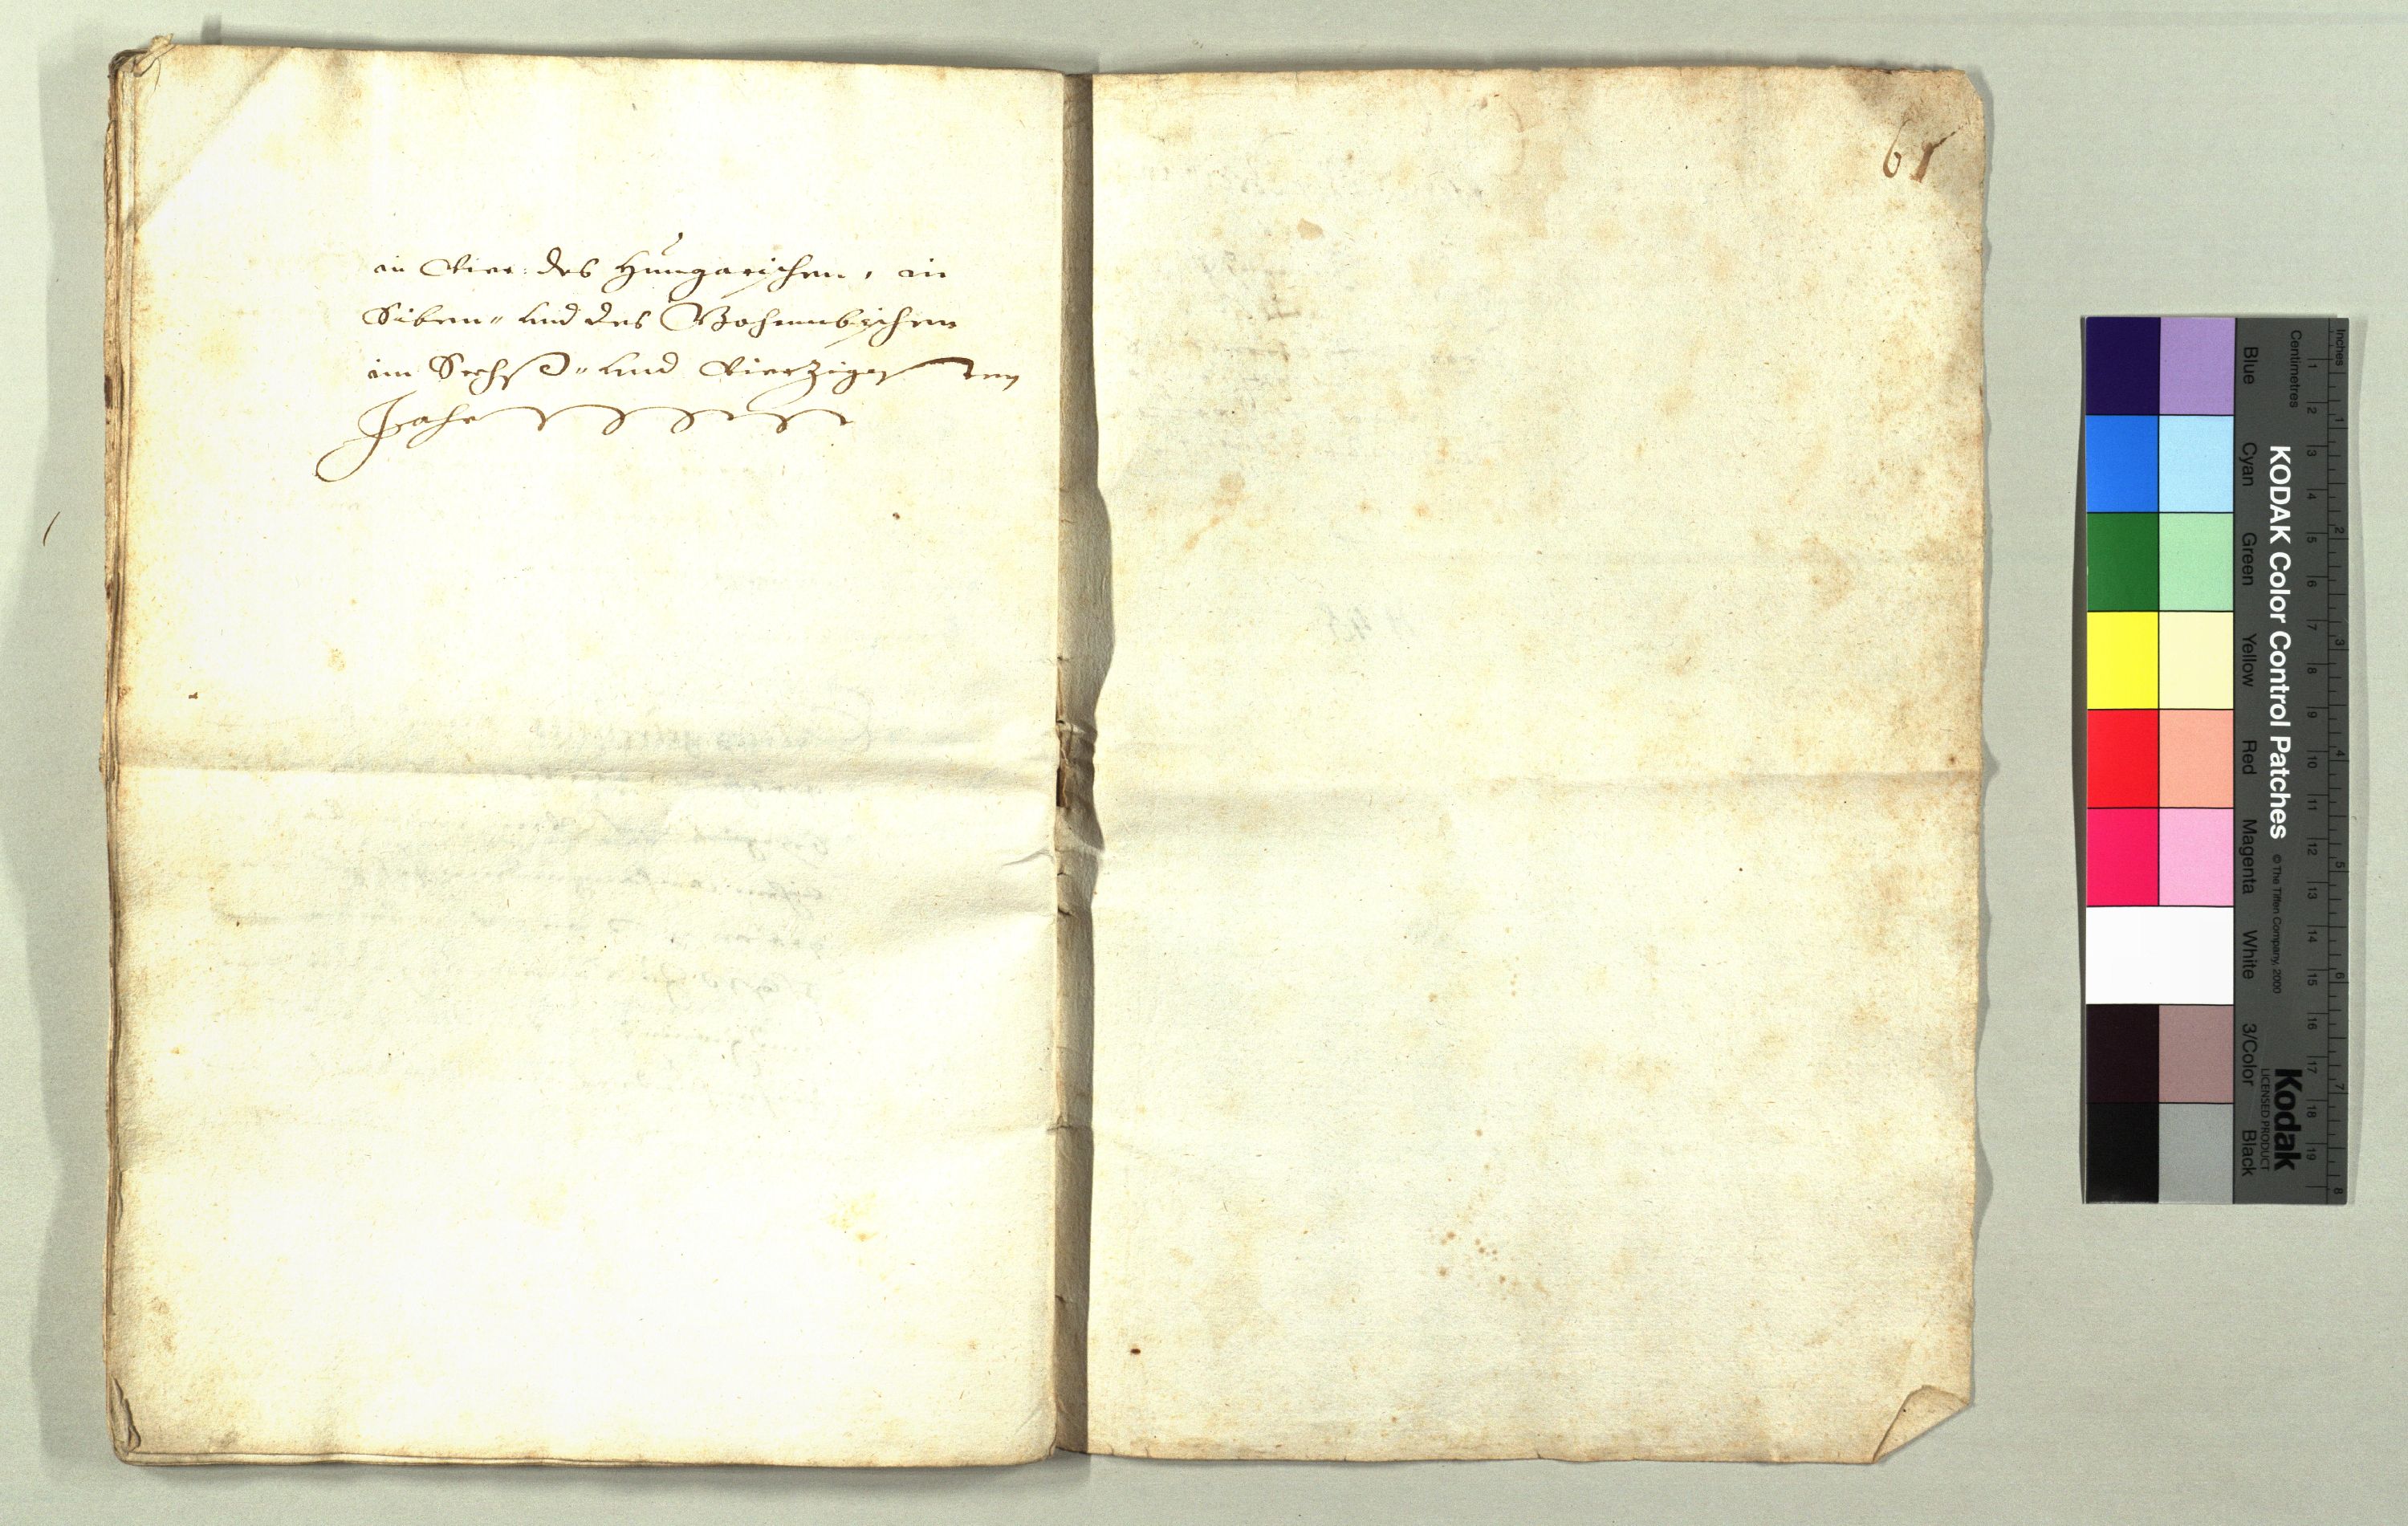 in Vier: des Hungarischen, in
Siben= und des Bohemischen
im Sechs= und Vierzigsten
Jahr
61
KODAK Color Control Patches
© The Tiffen Company, 2000
Kodak
LICENSED PRODUCT
Inches
Centimetres
1 2 3 4 5 6 7 8 9 10 11 12 13 14 15 16 17 18 19
1 2 3 4 5 6 7 8
Blue Cyan Green Yellow Red Magenta White 3/Color Black